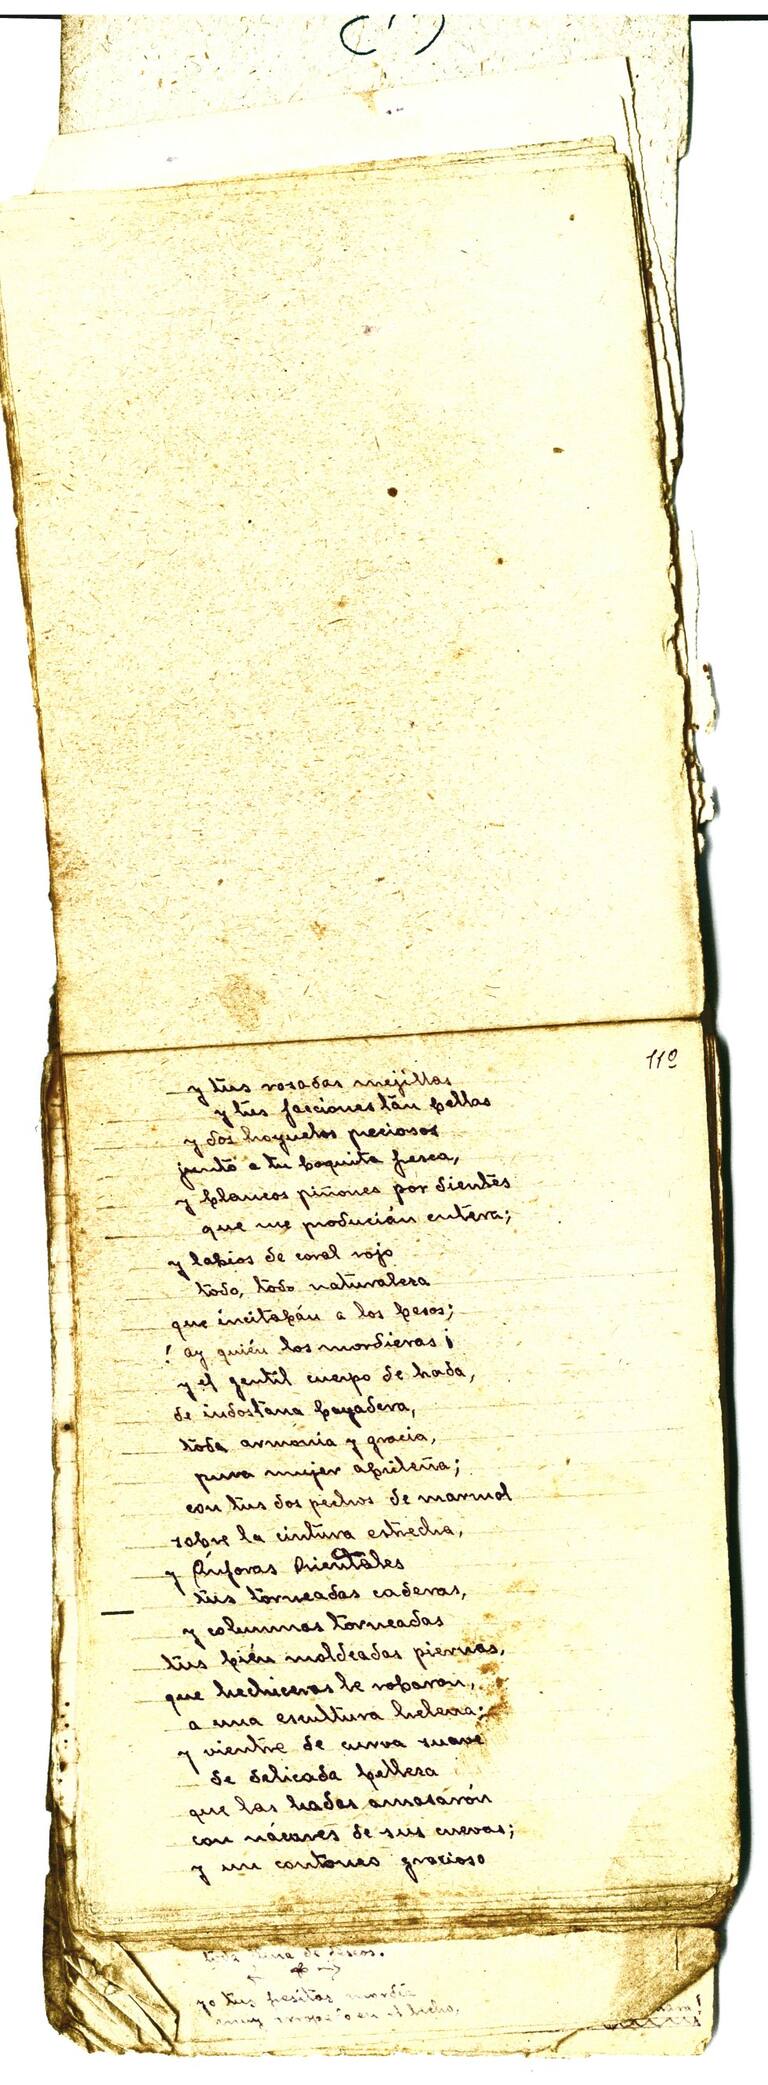 (1)
11º
y tus rosadas mejillas
y tus facciones tán bellas
y dos hoyuelos preciosos
junto a tu boquita fresca,
y blancos piñones por dientes
que me producián entera;
y labios de coral rojo
todo, todo naturaleza
que incitabán a los besos;
! ay quién los mordieras ¡
y el gentil cuerpo de hada,
de indostana bayadera,
toda armonia y gracia,
pura mujer abrileña;
con tus dos pechos de marmol
sobre la cintura estrecha,
y Ánforas Orientales
tus torneadas caderas,
y columnas torneadas
tus bién moldeadas piernas,
que hechiceras le robaron,
a una escultura helena;
y vientre de curva suave
de delicada belleza
que las hadas amasarón
con nácares de sus cuevas;
y un contoneo gracioso
toda de deseos.
yo tus besitos
muy en el lecho.